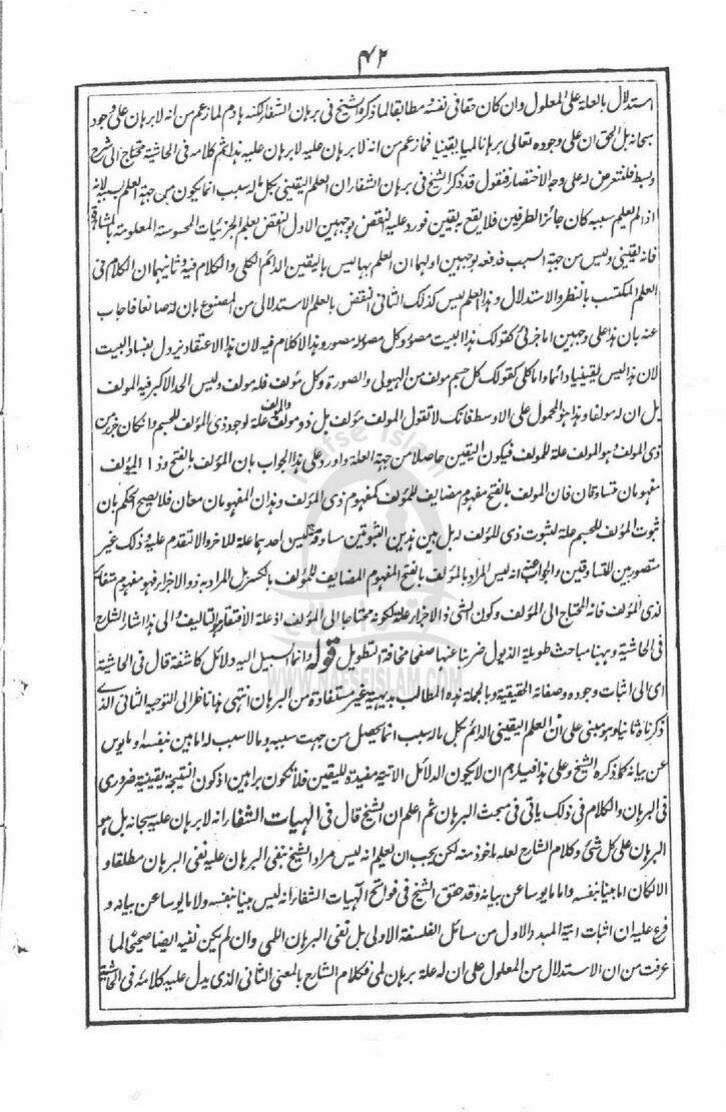 ٤٢
استدلال بالعلة على المعلول وان كان حقا فى نفسه مطابقا لما ذكره الشيخ فى برهان الشفا لكنه هادم لما زعم من انه لا برهان على وجوده
سبحانه بل الحق ان على وجوده تعالى برهانا لميا يقينيا فما زعم من انه لا برهان عليه لا برهان عليه هذا ثم كلامه فى الحاشية محتاج الى شرح
وبسط فلنتعرض له على وجه الاختصار فنقول قد ذكر الشيخ فى برهان الشفا ان العلم اليقينى بكل ماله سبب انما يكون من جهة العلم بسببه لانه
اذا لم يعلم سببه كان جائز الطرفين فلا يقع يقين فورد عليه النقض بوجهين الاول النقض بعلم الجزئيات المحسوسة المعلومة بالمشاهدة
فانه يقينى وليس من جهة السبب فدفعه بوجهين اولهما ان العلم بها ليس باليقين الدائم الكلى والكلام فيه وثانيهما ان الكلام فى
العلم المكتسب بالنظر والاستدلال وهذا العلم ليس كذلك الثانى النقض بالعلم الاستدلالى من المصنوع بان له صانعا فاجاب
عنه بان هذا على وجهين اما جزئى كقولك هذا البيت مصور وكل مصور له مصور وهذا لا كلام فيه لان هذا الاعتقاد يزول بفساد البيت
لان هذا ليس يقينيا دائما واما كلى كقولك كل جسم مولف من الهيولى والصورة وكل مؤلف فله مولف وليس الحد الاكبر فيه المولف
بل ان له مولفا وهذا هو المحمول على الاوسط فانك لا تقول المولف مؤلف بل ذو مولف والمولف علة لوجود ذى المؤلف للجسم وان كان جزء من
ذى المولف وهو المولف علة للمولف فيكون اليقين حاصلا من جهة العلة واورد على هذا الجواب بان المؤلف بالفتح وذا المؤلف
مفهومان متساوقان فان المولف بالفتح مفهوم مضايف للمؤلف كمفهوم ذى المؤلف وهذان المفهومان معان فلا يصح الحكم بان
ثبوت المؤلف للجسم علة لثبوت ذى المؤلف له بل بين هذين الثبوتين مساوقة فليس احدهما علة للآخر والا لتقدم عليه وذلك غير
متصور بين المتساوقين والجواب عنه انه ليس المراد بالمؤلف بالفتح المفهوم المضايف للمؤلف بالكسر بل المراد به ذو الاجزاء فهو مفهوم مغائر
لذى المؤلف فانه المحتاج الى المؤلف وكون الشئ ذو الاجزاء علة لكونه محتاجا الى المؤلف اذ علة الافتقار التاليف والى هذا اشار الشارح
فى الحاشية وههنا مباحث طويلة الذيول ضربنا عنها صفحا مخافة التطويل قوله وانما السبيل اليه دلائل كاشفة قال فى الحاشية
اى الى اثبات وجوده وصفاته الحقيقية وبالجملة هذه المطالب بديهية غير مستفادة من البرهان انتهى هذا ناظر الى التوجيه الثانى الذى
ذكرناه ثانيا وهو مبنى على ان العلم اليقينى الدائم بكل ماله سبب انما يحصل من جهت سببه وما لا سبب له اما بين بنفسه او مايوس
عن بيانه كما ذكره الشيخ وعلى هذا فيلزم ان لا يكون الدلائل الآتية مفيدة لليقين فلا تكون براهين اذ كون النتيجة يقينية ضرورى
فى البرهان والكلام فى ذلك ياتى فى مبحث البرهان ثم اعلم ان الشيخ قال فى الهيات الشفا انه لا برهان عليه سبحانه بل هو
البرهان على كل شئ وكلام الشارح لعله ماخوذ منه لكن يجب ان يعلم انه ليس مراد الشيخ بنفى البرهان عليه نفى البرهان مطلقا و
الا لكان اما بينا بنفسه واما مايوسا عن بيانه وقد حقق الشيخ فى فواتح الٓهيات الشفا انه ليس بينا بنفسه ولا مايوسا عن بيانه و
فرع عليه ان اثبات انية المبدء الاول من مسائل الفلسفة الاولى بل نفى البرهان اللمى وان لم يكن نفيه ايضا صحيحا لما
عرفت من ان الاستدلال من المعلول على ان له علة برهان لمى فكلام الشارح بالمعنى الثانى الذى يدل عليه كلامه فى الحاشية
Nafse Islam
WWW.NAFSEISLAM.COM